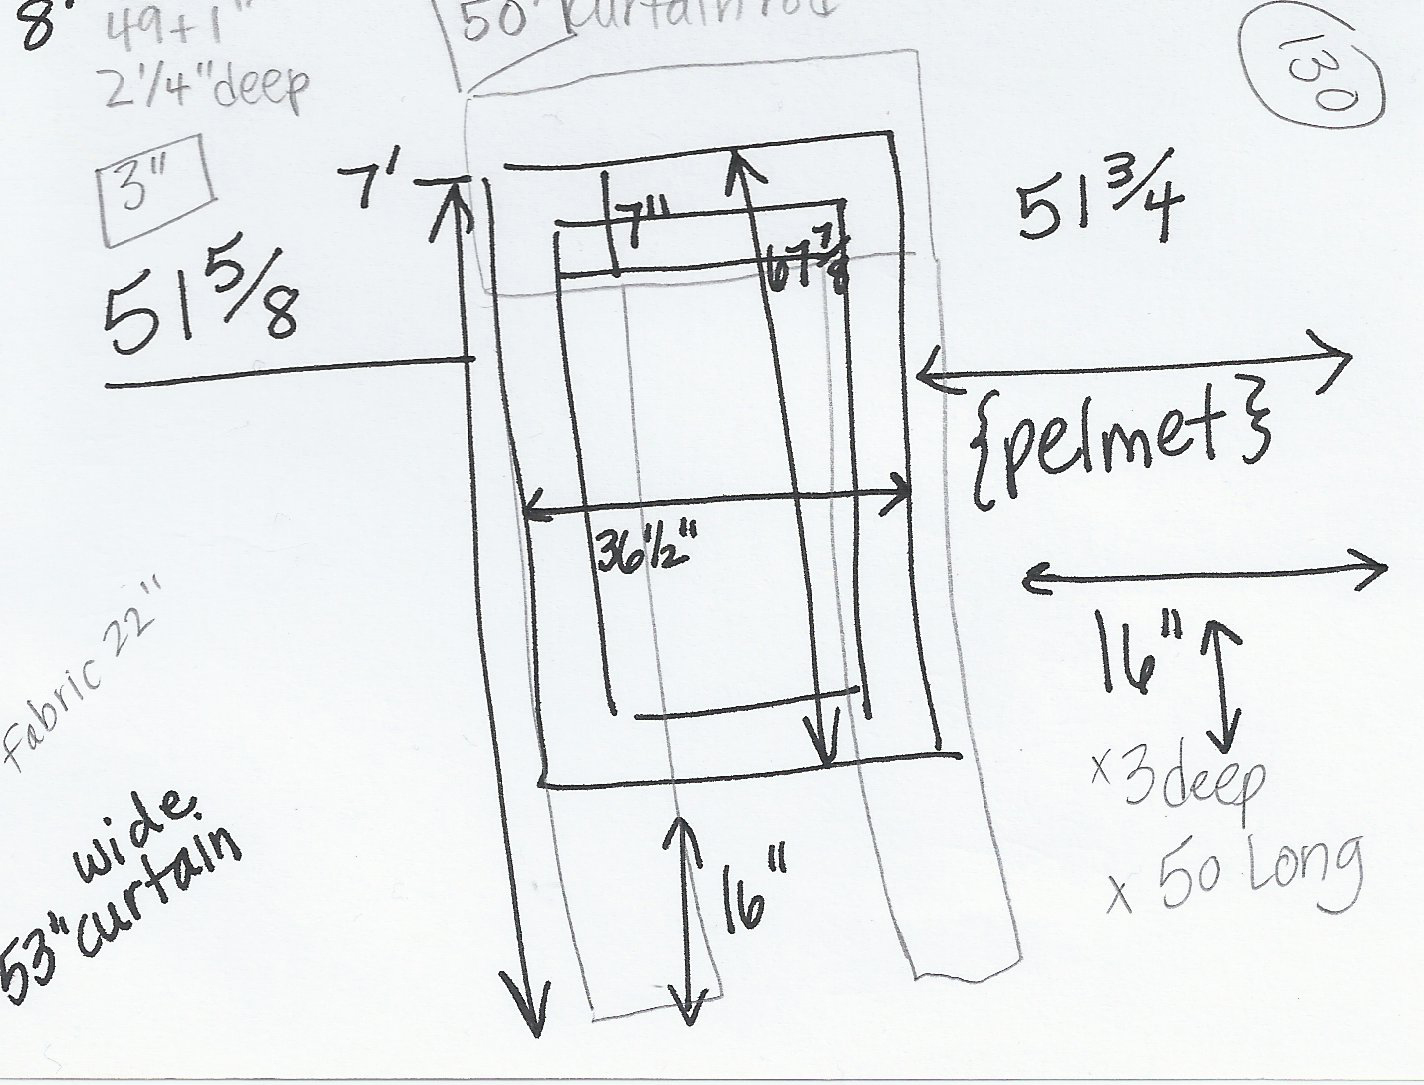 8'
49+1"
2 1/4" deep
50" curtain rod
130
3"
7'
7"
67 7/8
51 3/4
51 5/8
{pelmet}
36 1/2"
16"
x 3 deep
x 50 Long
fabric 22"
wide
53" curtain
16"